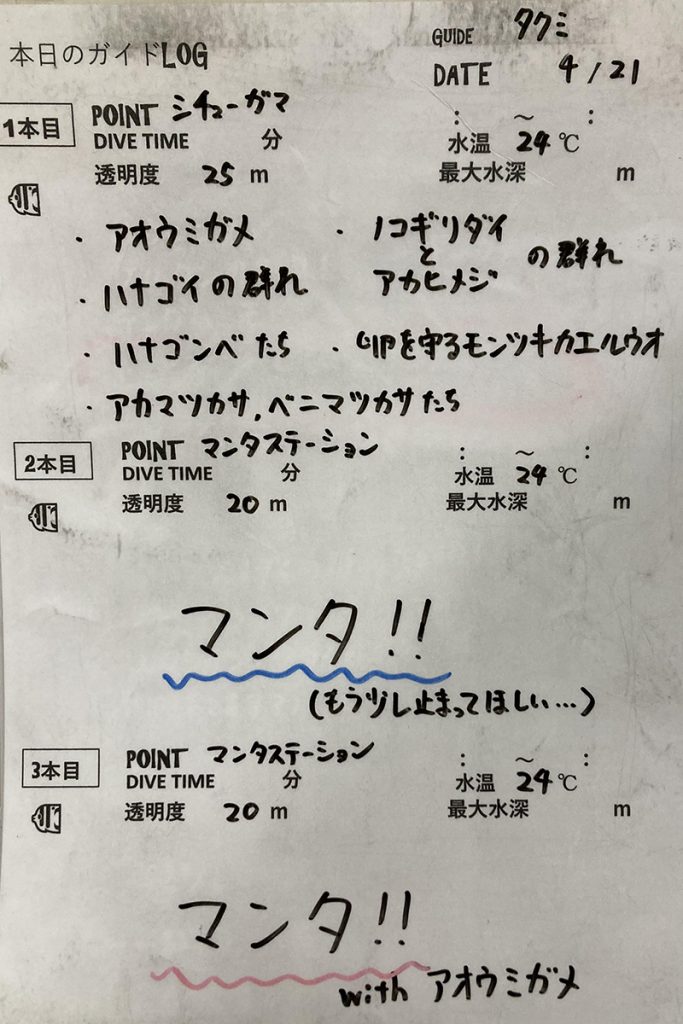 本日のガイドLOG
GUIDE タクミ
DATE 4/21
1本目 POINT シチューガマ : ～ :
DIVE TIME 分 水温 24℃
透明度 25 m 最大水深 m
・アオウミガメ ・ノコギリダイとアカヒメジの群れ
・ハナゴイの群れ
・ハナゴンベたち ・卵を守るモンツキカエルウオ
・アカマツカサ,ベニマツカサたち
2本目 POINT マンタステーション : ～ :
DIVE TIME 分 水温 24℃
透明度 20 m 最大水深 m
マンタ!!
(もう少し止まってほしい…)
3本目 POINT マンタステーション : ～ :
DIVE TIME 分 水温 24℃
透明度 20 m 最大水深 m
マンタ!!
with アオウミガメ